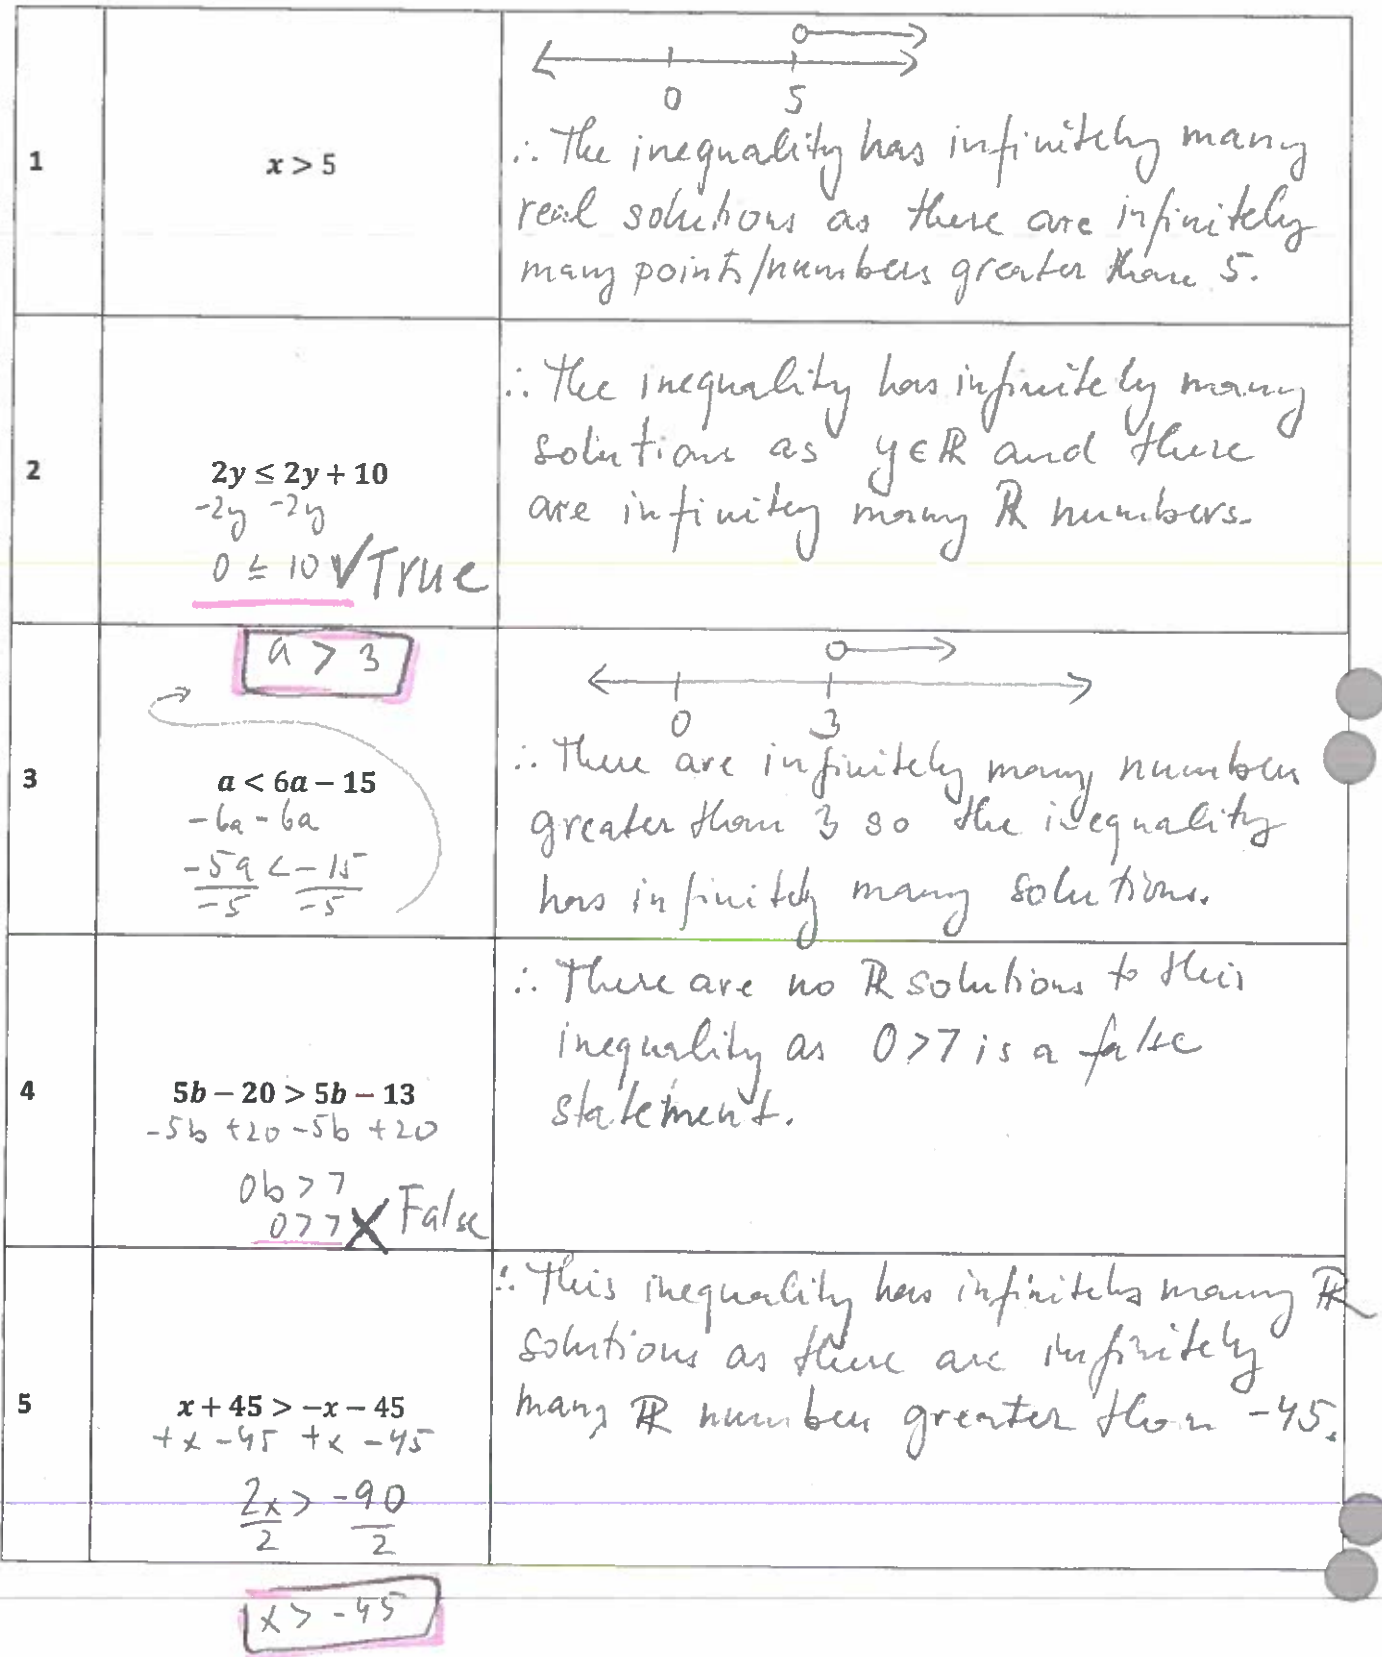 1
x > 5
0 5
∴ The inequality has infinitely many
real solutions as there are infinitely
many points/numbers greater than 5.
2
2y ≤ 2y + 10
-2y -2y
0 ≤ 10 ✓ True
∴ The inequality has infinitely many
solutions as y∈ℝ and there
are infinitey many ℝ numbers.
3
a > 3
a < 6a – 15
-6a -6a
-5a < -15
-5 -5
0 3
∴ There are infinitely many number
greater than 3 so the inequality
has infinitely many solutions.
4
5b – 20 > 5b – 13
-5b +20 -5b +20
0b > 7
0 > 7 X False
∴ There are no ℝ solutions to this
inequality as 0 > 7 is a false
statement.
5
x + 45 > –x – 45
+x -45 +x -45
2x > -90
2 2
x > -45
∴ This inequality has infinitely many ℝ
solutions as there are infinitely
many ℝ number greater than -45.